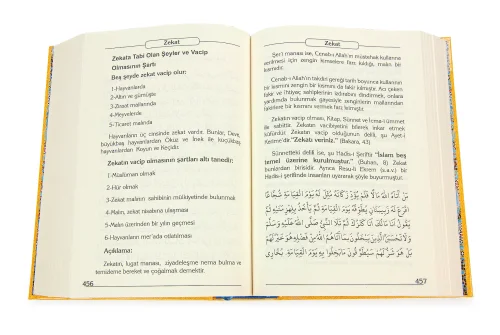 Zekat
Zekata Tabi Olan Şeyler ve Vacip
Olmasının Şartı
Beş şeyde zekat vacip olur:
1-Hayvanlarda
2-Altın ve gümüşte
3-Ziraat mallarında
4-Meyvelerde
5-Ticaret malında
Hayvanların üç cinsinde zekat vardır. Bunlar, Deve,
büyükbaş hayvanlardan Öküz ve İnek ile küçükbaş
hayvanlardan Koyun ve Keçidir.
Zekatın vacip olmasının şartları altı tanedir:
1-Müslüman olmak
2-Hür olmak
3-Zekat malının sahibinin mülkiyetinde bulunmak
4-Malın, zekat nisabına ulaşması
5-Malın üzerinden bir yılın geçmesi
6-Hayvanların mer'ada otlatılması
Açıklama:
Zekatın, lugat manası, ziyadeleşme nema bulma ve
temizleme bereket ve çoğalmak demektir.
456
Zekat
Şer'i manası ise, Cenab-ı Allah'ın müstehak kullarına
verilmesi için zengin kimselere farz kıldığı, malın bir
kısmıdır.
Cenab-ı Allah'ın takdiri gereği tarih boyunca kullarının
bir kısmını zengin bir kısmını da fakir kılmıştır. Acı çeken
fakir ve ihtiyaç sahiplerinin ızdırabını dindirmek, onlara
yardımda bulunmak gayesiyle zenginlerin mallarından
ihtiyaçlılara bir kısmını vermesi farz kılındı.
Zekatın vacip olması, Kitap, Sünnet ve İcma-ı ümmet
ile sabittir. Zekatın vacibiyetini bilerek inkar etmek
küfürdür. Zekatın vacip olduğunun delili, şu Ayet-i
kerimesidir. "Zekatı veriniz." (Bakara, 43)
Sünnetteki delili ise, şu Hadis-i Şeriftir "İslam beş
temel üzerine kurulmuştur." (Buhari, 8) Zekat
bunlardan birisidir. Ayrıca Resul-i Ekrem (s.a.v.) bir
Hadis-i şerifinde insanları uyararak şöyle buyurmuştur.
مَنْ آتَاهُ اللهُ مَالًا فَلَمْ يُؤَدِّ زَكَاتَهُ مُثِّلَ لَهُ يَوْمَ الْقِيَامَةِ شُجَاعًا
أَقْرَعَ لَهُ زَبِيبَتَانِ يُطَوَّقُهُ يَوْمَ الْقِيَامَةِ ثُمَّ يَأْخُذُ بِلِهْزِمَتَيْهِ ثُمَّ
يَقُولُ أَنَا مَالُكَ أَنَا كَنْزُكَ ثُمَّ تَلَا النَّبِيُّ صَلَّى اللهُ عَلَيْهِ وَسَلَّمَ
وَلَا يَحْسَبَنَّ الَّذِينَ يَبْخَلُونَ بِمَا آتَاهُمُ اللهُ مِنْ فَضْلِهِ هُوَ خَيْرًا لَهُمْ
بَلْ هُوَ شَرٌّ لَهُمْ سَيُطَوَّقُونَ مَا بَخِلُوا بِهِ يَوْمَ الْقِيَامَةِ. بُخَارِي
457